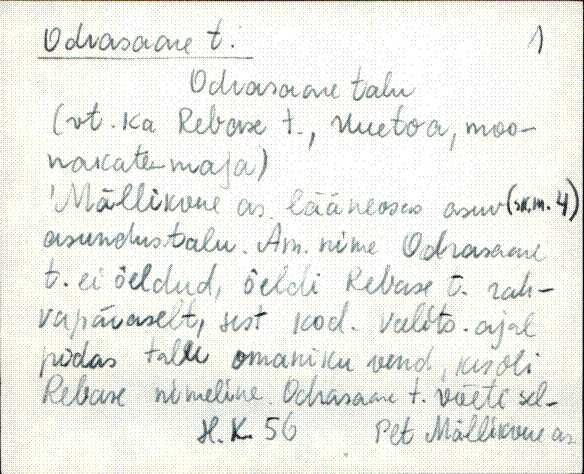 Odrasaare t. 1)
Odrasaare talu
(vt. ka Rebase t., Uuetoa, moo-
nakate maja)
'Mällikvere as. lääneosas asuv (sk.m. 4)
asundustalu. Am. nime Odrasaare
t. ei öeldud, öeldi Rebase t. rah-
vapäraselt, sest kod. valits. ajal
pidas talu omaniku vend, kes oli
Rebase nimeline. Odrasaare t. võeti sel-
H.K. 56 Plt Mällikvere as